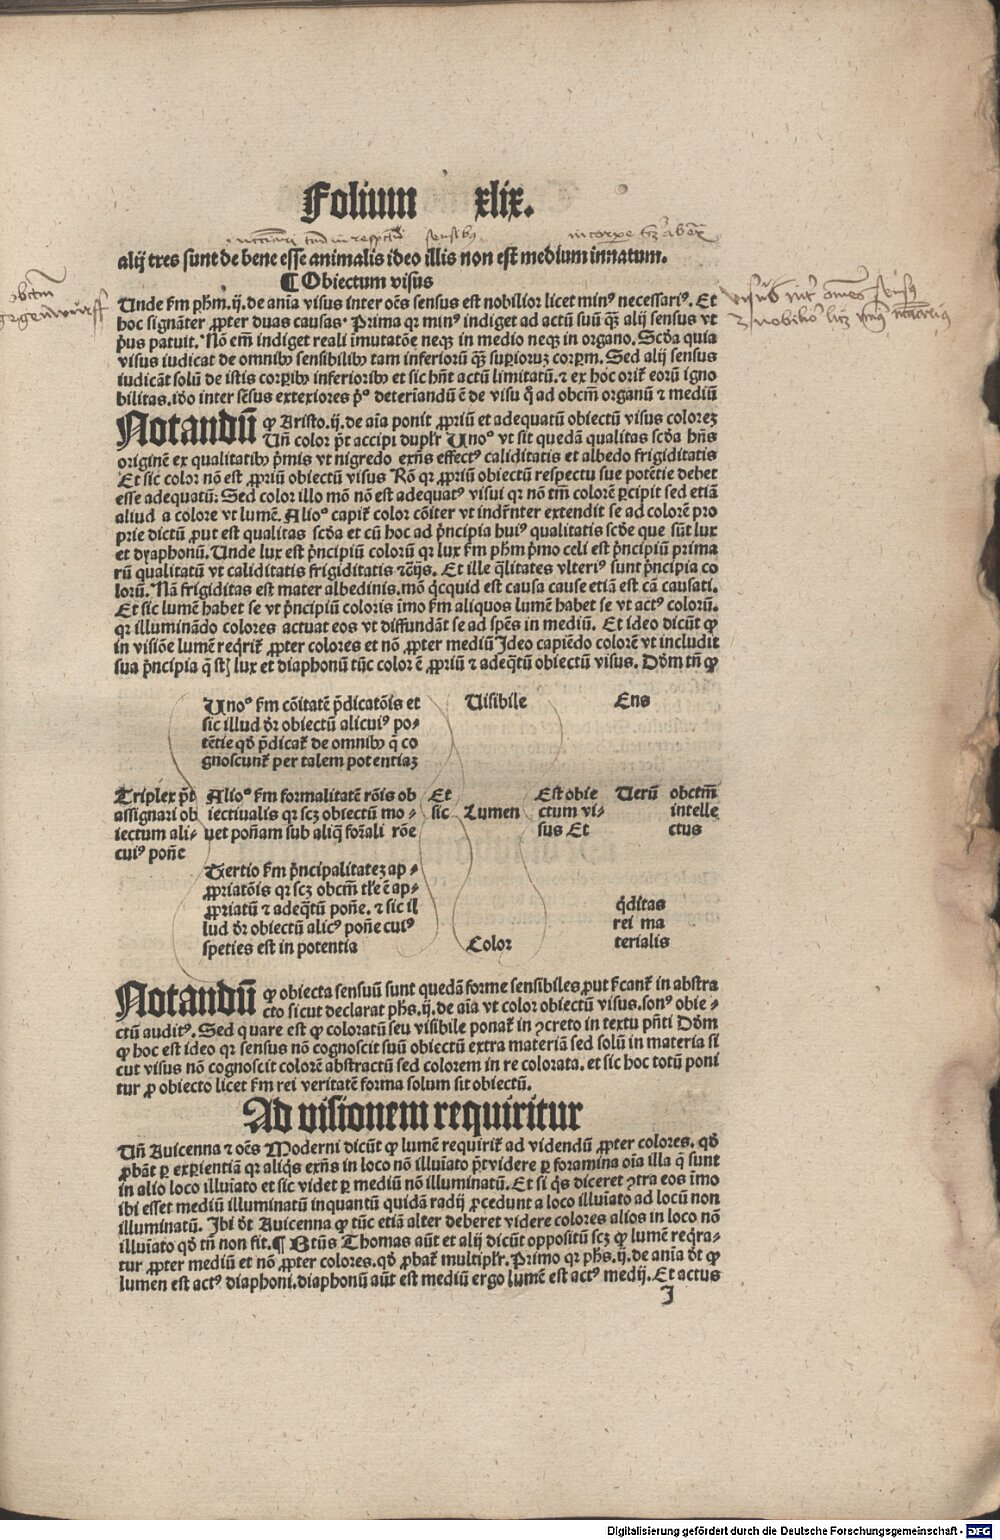 Folium xlix.
alij tres sunt de bene esse animalis ideo illis non est medium innatum.
¶ Obiectum visus
Unde fm pħm .ij. de ania visus inter oēs sensus est nobilior licet minꝰ necessariꝰ. Et
hoc signāter ꝓpter duas causas. Prima qr minꝰ indiget ad actū suū qꝫ alij sensus vt
pꝰus patuit. Nō em̄ indiget reali īmutatōe neqꝫ in medio neqꝫ in organo. Scd̄a quia
visus iudicat de omnibꝰ sensibilibꝰ tam inferiorū qꝫ supioruꝫ corpꝝm. Sed alij sensus
iudicāt solū de istis corpibꝰ inferioribꝰ et sic hn̄t actū limitatū. ⁊ ex hoc orit̄ eorū igno
bilitas. iō inter sēsus exteriores pꝰ deteriandū ē de visu q̄ ad obcm̄ organū ⁊ mediū
Notandū ꝙ Aristo.ij.de aīa ponit ꝓpriū et adequatū obiectū visus coloreꝫ
Un̄ color pt̄ accipi duplr̄ Unoº vt sit quedā qualitas scd̄a hn̄s
originē ex qualitatibꝰ pͥmis vt nigredo exn̄s effectꝰ caliditatis et albedo frigiditatis
Et sic color nō est ꝓpriū obiectū visus Rō qr ꝓpriū obiectū respectu sue potētie debet
esse adequatū: Sed color illo mō nō est adequatꝰ visui qr nō tm̄ colorē ꝑcipit sed etiā
aliud a colore vt lumē. Alioº capit̄ color cōiter vt indr̄nter extendit se ad colorē pro
prie dictū ꝓut est qualitas scd̄a et cū hoc ad pͥncipia huiꝰ qualitatis scd̄e que sūt lux
et dyaphonū. Unde lux est pͥncipiū colorū qr lux fm pħm pͥmo celi est pͥncipiū prima
rū qualitatū vt caliditatis frigiditatis ⁊c̄ijs. Et ille q̄litates vlteriꝰ sunt pͥncipia co
lorū. Nā frigiditas est mater albedinis. mō qͥcquid est causa cause etiā est cā causati.
Et sic lumē habet se vt pͥncipiū coloris īmo fm aliquos lumē habet se vt actꝰ colorū.
qr illumināndo colores actuat eos vt diffundāt se ad spēs in mediū. Et ideo dicūt ꝙ
in visiōe lumē reqͥrit̄ ꝓpter colores et nō ꝓpter mediū Ideo capiēdo colorē vt includit
sua pͥncipia q̄ st̄ lux et diaphonū tūc color ē ꝓpriū ⁊ adeq̄tū obiectū visus. Dōm tn̄ ꝙ
Unoº fm cōitatē pͥdicatōis et Visibile Ens
sic illud dr̄ obiectū alicuiꝰ po-
tētie qd̄ pͥdicat̄ de omnibꝰ q̄ co
gnoscunt̄ per talem potentiaꝫ
Triplex pt̄ Alioº fm formalitatē rōis ob Et Est obie Verū obctm̄
assignari ob iectiualis qr scꝫ obiectū mo- sic Lumen ctum vi- intelle
iectum ali- uet pon̄am sub aliq̄ for̄ali rōe sus Et ctus
cuiꝰ pon̄e
Tertio fm pͥncipalitateꝫ ap-
ꝓpriatōis qr scꝫ obcm̄ tl̄e ē ap-
ꝓpriatū ⁊ adeq̄tū pon̄e. ⁊ sic il qͥditas
lud dr̄ obiectū alicꝰ pon̄e cuiꝰ rei ma
speties est in potentia Color terialis
Notandū ꝙ obiecta sensuū sunt quedā forme sensibiles ꝓut fīcant̄ in abstra
cto sicut declarat pħs.ij.de aīa vt color obiectū visus. sonꝰ obie-
ctū auditꝰ. Sed quare est ꝙ coloratū seu visibile ponat̄ in ꝯcreto in textu pn̄ti Dōm
ꝙ hoc est ideo qr sensus nō cognoscit suū obiectū extra materiā sed solū in materia si
cut visus nō cognoscit colorē abstractū sed colorem in re colorata. et sic hoc totū poni
tur ꝓ obiecto licet fm rei veritatē forma solum sit obiectū.
Ad visionem requiritur
Un̄ Auicenna ⁊ oēs Moderni dicūt ꝙ lumē requirit̄ ad videndū ꝓpter colores. qd̄
ꝓbāt ꝑ experientiā qr aliqͥs exn̄s in loco nō illuīato pt̄ videre ꝑ foramina oīa illa q̄ sunt
in alio loco illuīato et sic videt ꝑ mediū nō illuminatū. Et si qͥs diceret ꝯtra eos īmo
ibi esset mediū illuminatū inquantū quidā radij ꝓcedunt a loco illuīato ad locū non
illuminatū. Ibi dt̄ Auicenna ꝙ tūc etiā alter deberet videre colores alios in loco nō
illuīato qd̄ tn̄ non fit. ¶ Btūs Thomas aūt et alij dicūt oppositū scꝫ ꝙ lumē reqͥra-
tur ꝓpter mediū et nō ꝓpter colores. qd̄ ꝓbat̄ multiplr̄. Primo qr pħs.ij.de ania dt̄ ꝙ
lumen est actꝰ diaphoni. diaphonū aūt est mediū ergo lumē est actꝰ medij. Et actus
I
Digitalisierung gefördert durch die Deutsche Forschungsgemeinschaft - DFG